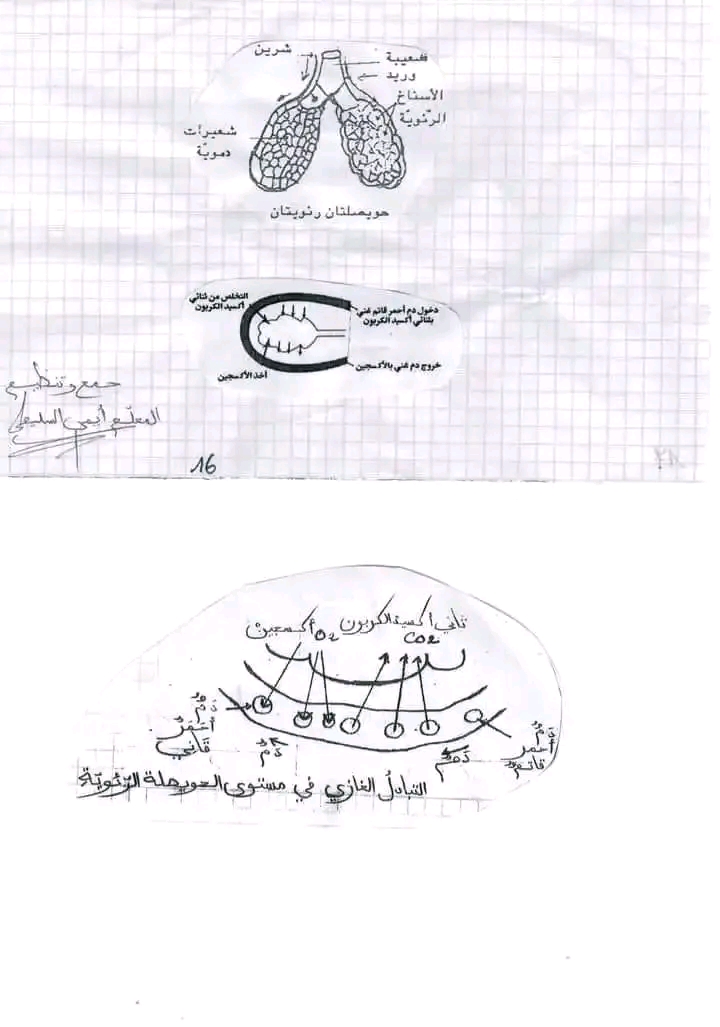 شرين
قصيبة
وريد
الأسناخ
الرّئويّة
شعيرات
دمويّة
حويصلتان رئويتان
التخلص من ثنائي
أكسيد الكربون
دخول دم أحمر قاتم غني
بثنائي أكسيد الكربون
خروج دم غني بالأكسجين
أخذ الأكسجين
جمع وتنظيم
المعلّم أيمن السليطي
16
ثاني أكسيد الكربون
CO2
أكسجين O2
دَمٌ
أَحْمَرٌ
قَاني
دَمٌ
دَمٌ
دَمٌ
أحمر
قاتم
التبادلُ الغازي في مستوى الحويصلة الرّئويّة